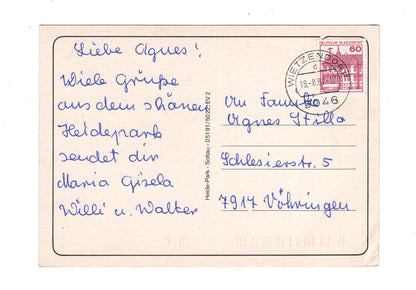 Liebe Agnes!
Wiele Grüße
aus dem schönen
Heidepark
sendet dir
Maria Gisela
Willi u. Walter
Heide-Park · Soltau · 05191/5022 EV 2
DEUTSCHE BUNDESPOST
60
WIETZENDORF
3046
An Familie
Agnes Stilla
Schlesierstr. 5
7917 Vöhringen